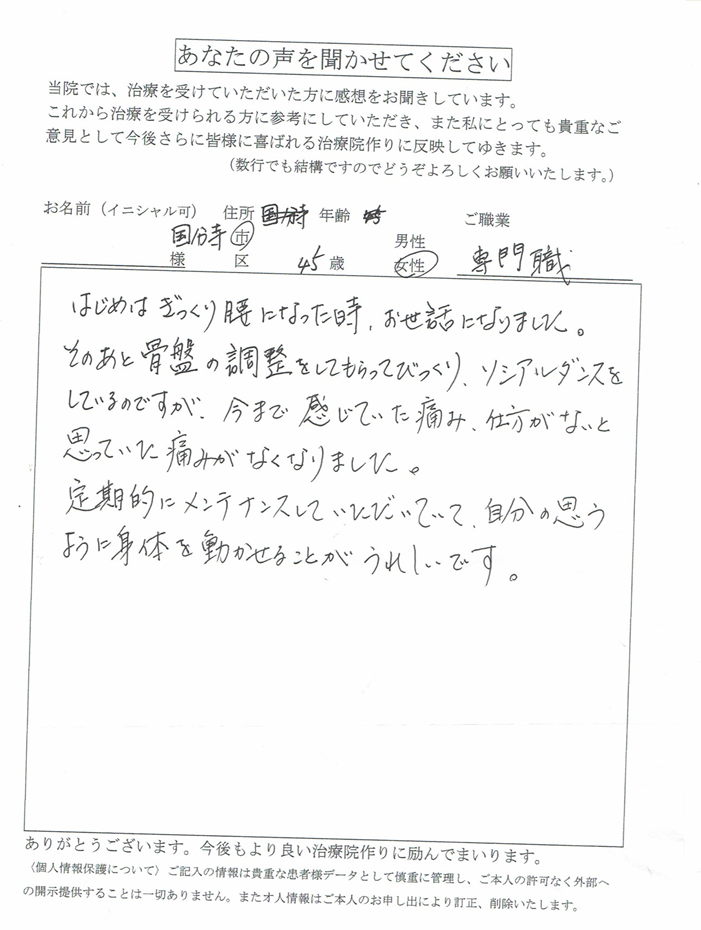 あなたの声を聞かせてください
当院では、治療を受けていただいた方に感想をお聞きしています。
これから治療を受けられる方に参考にしていただき、また私にとっても貴重なご
意見として今後さらに皆様に喜ばれる治療院作りに反映してゆきます。
（数行でも結構ですのでどうぞよろしくお願いいたします。）
お名前（イニシャル可） 住所 国分寺 年齢 ご職業
国分寺 市 男性
様 区 45 歳 女性 専門職
はじめは ぎっくり腰になった時、お世話になりました。
そのあと骨盤の調整をしてもらってびっくり、ソシアルダンスを
しているのですが、今まで感じていた痛み、仕方がないと
思っていた痛みがなくなりました。
定期的にメンテナンスしていただいていて、自分の思う
ように身体を動かせることがうれしいです。
ありがとうございます。今後もより良い治療院作りに励んでまいります。
〈個人情報保護について〉ご記入の情報は貴重な患者様データとして慎重に管理し、ご本人の許可なく外部へ
の開示提供することは一切ありません。またオ人情報はご本人のお申し出により訂正、削除いたします。